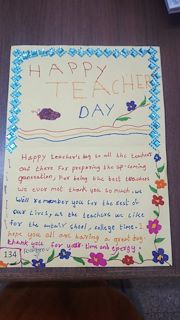 HAPPY
TEACHER
DAY
Happy teacher's day to all the teachers
out there for preparing the up-coming
generation, for being the best teachers
we ever met thank you so much. we
will remember you for the rest of
our lives, as the teachers we like
for the entair shool, college time. I
hope you all are having a great day.
thank you for your time and energy.
134